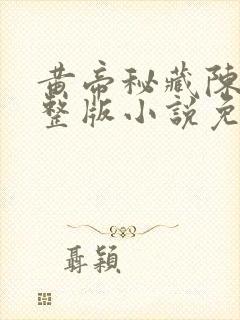 黄帝秘藏陳
整版小說免
聶穎